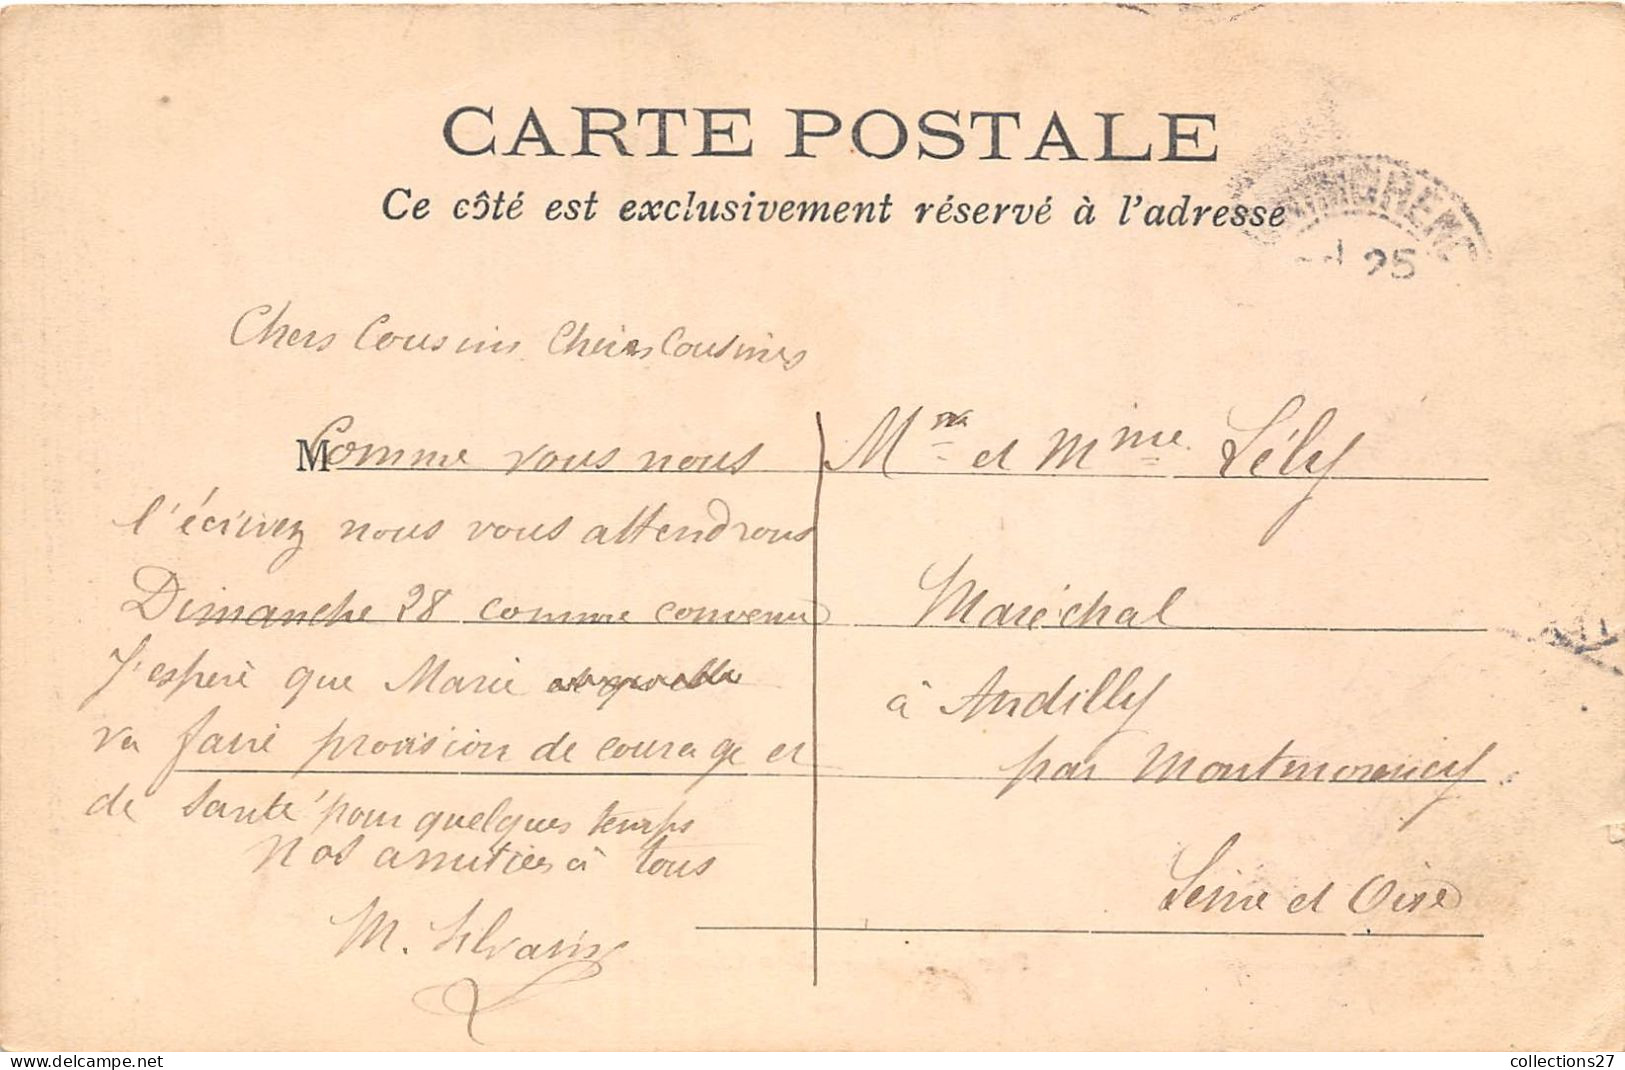 CARTE POSTALE
Ce côté est exclusivement réservé à l'adresse
25
Chers Cousins Chères Cousines
M
Comme vous nous
l'écrivez nous vous attendrons
Dimanche 28 comme convenu
J'espère que Marie
va faire provision de courage et
de santé pour quelques temps
Nos amitiés à tous
M.
Mr et Mme Lély
Maréchal
à Andilly
par Montmorency
Seine et Oise
collections27